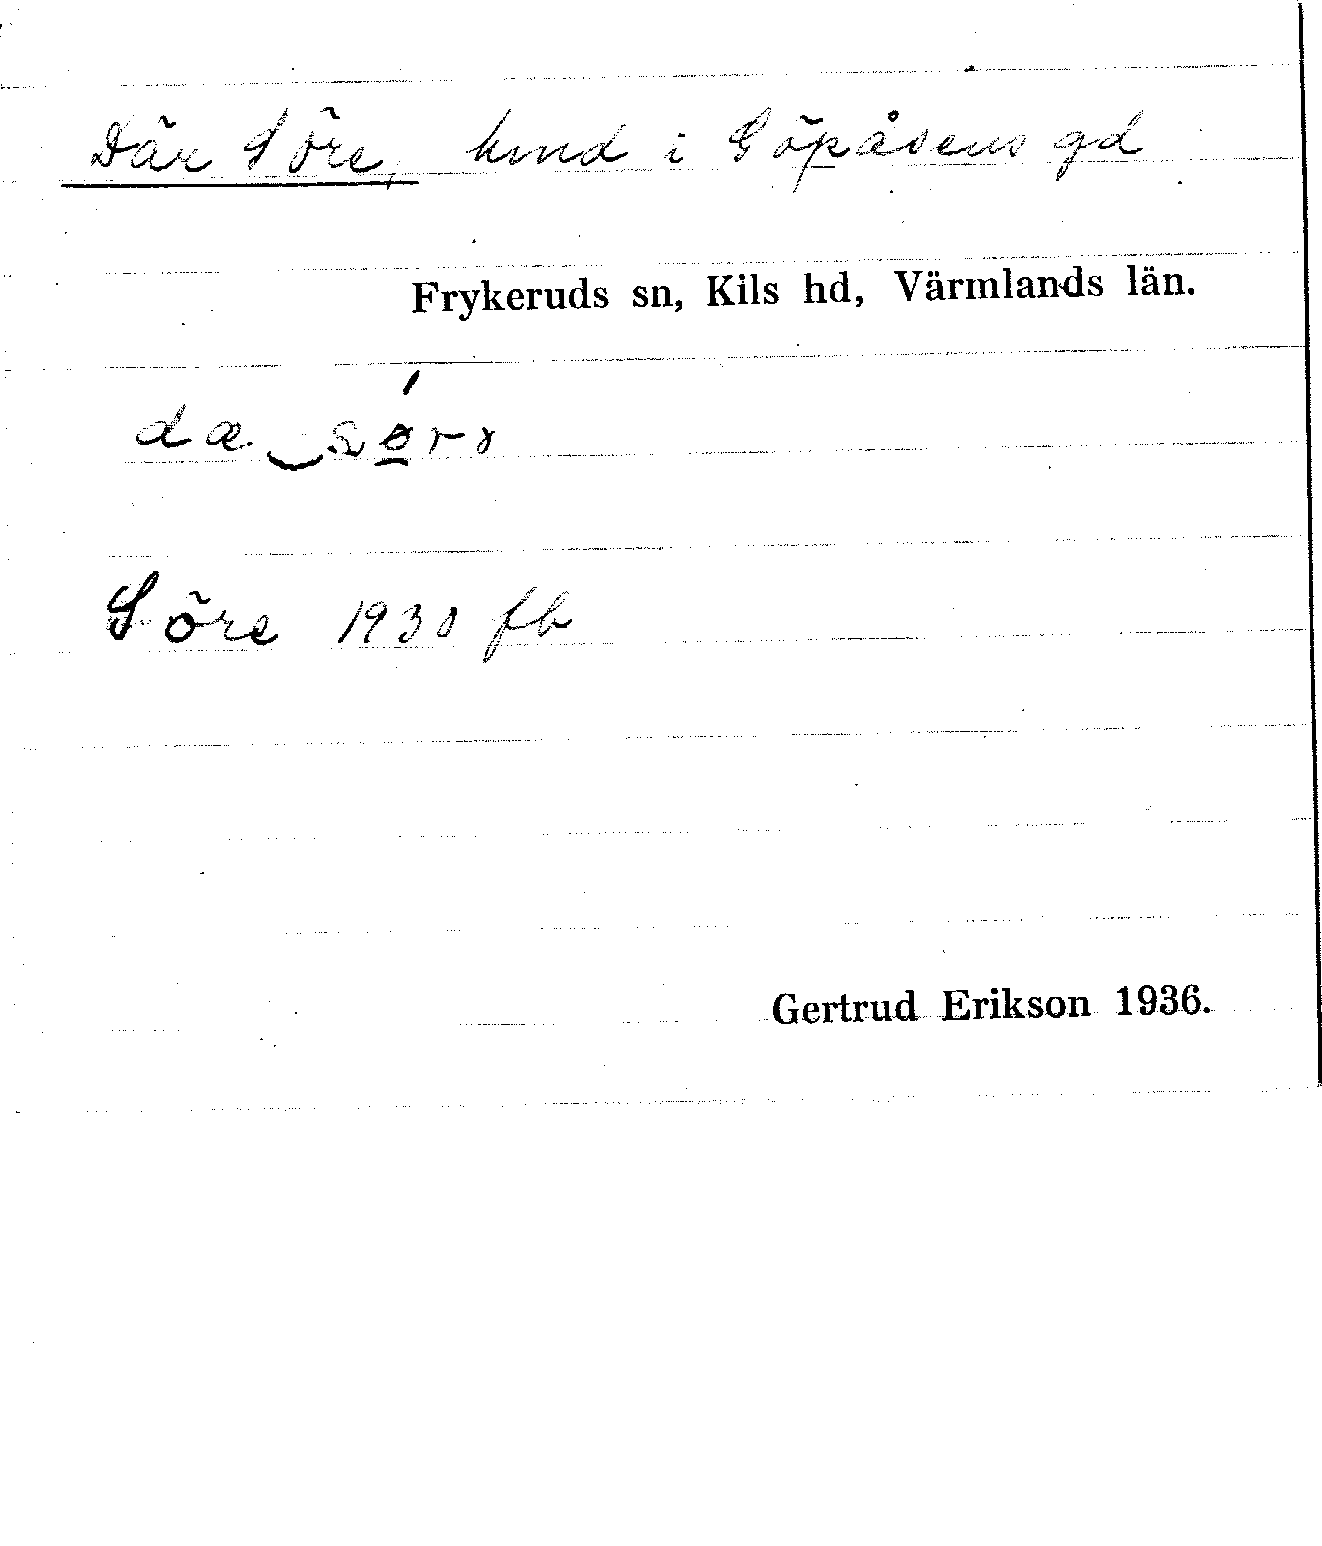 Där Söre, hmd i Göpåsens gd
Frykeruds sn, Kils hd, Värmlands län.
dæ sørə
Söre 1930 fb
Gertrud Erikson 1936.